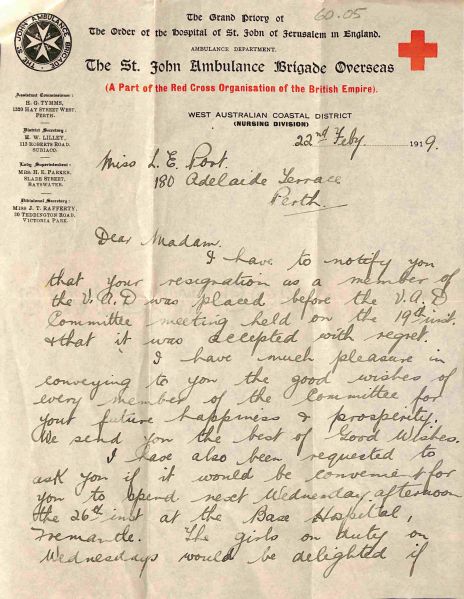 60.05
THE ST. JOHN AMBULANCE BRIGADE
The Grand Priory of
The Order of the Hospital of St. John of Jerusalem in England.
AMBULANCE DEPARTMENT.
The St. John Ambulance Brigade Overseas
(A Part of the Red Cross Organisation of the British Empire).
WEST AUSTRALIAN COASTAL DISTRICT
(NURSING DIVISION)
Assistant Commissioner:
H. G. TYMMS,
1320 HAY STREET WEST,
PERTH.
District Secretary:
E. W. LILLEY,
113 ROBERTS ROAD,
SUBIACO.
Lady Superintendent:
MISS H. E. PARKER,
SLADE STREET,
BAYSWATER.
Divisional Secretary:
MISS J. T. RAFFERTY,
30 TEDDINGTON ROAD,
VICTORIA PARK.
22nd Feby 1919.
Miss L. E. Port.
180 Adelaide Terrace
Perth.
Dear Madam.
I have to notify you
that your resignation as a member of
the V.A.D was placed before the V.A.D
Committee meeting held on the 19th inst.
& that it was accepted with regret.
I have much pleasure in
conveying to you the good wishes of
every member of the Committee for
your future happiness & prosperity.
We send you the best of Good Wishes.
I have also been requested to
ask you if it would be convenient for
you to spend next Wednesday afternoon
the 26th inst at the Base Hospital,
Fremantle. The girls on duty on
Wednesdays would be delighted if